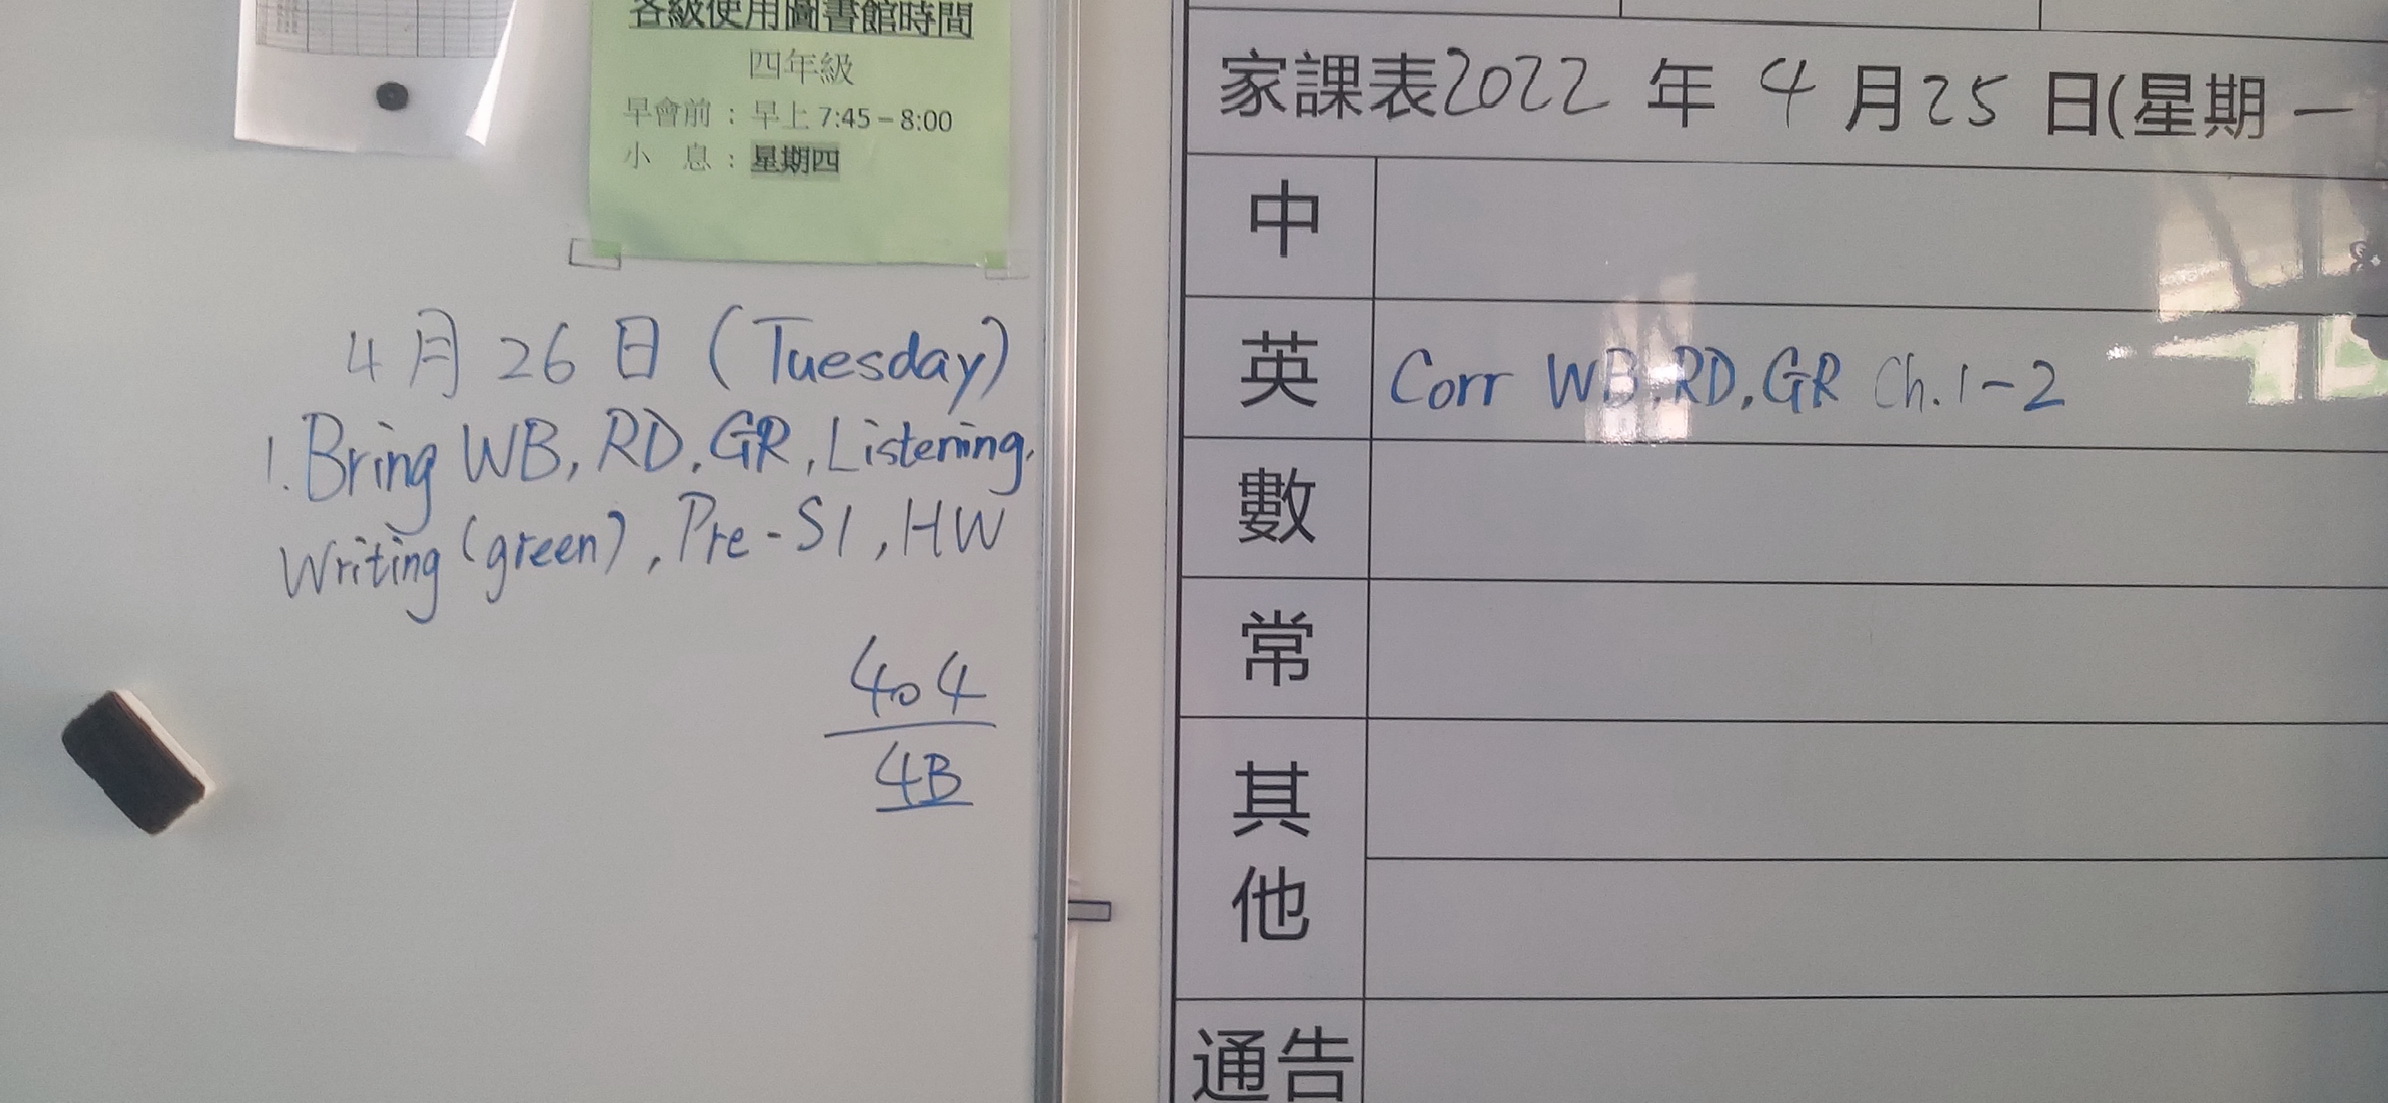 各級使用圖書館時間
四年級
早會前：早上 7:45 – 8:00
小 息：星期四
4月26日 (Tuesday)
1. Bring WB, RD, GR, Listening,
Writing (green), Pre-S1, HW
404
4B
家課表2022 年 4 月 25 日(星期 一
中
英 Corr WB, RD, GR Ch. 1-2
數
常
其他
通告